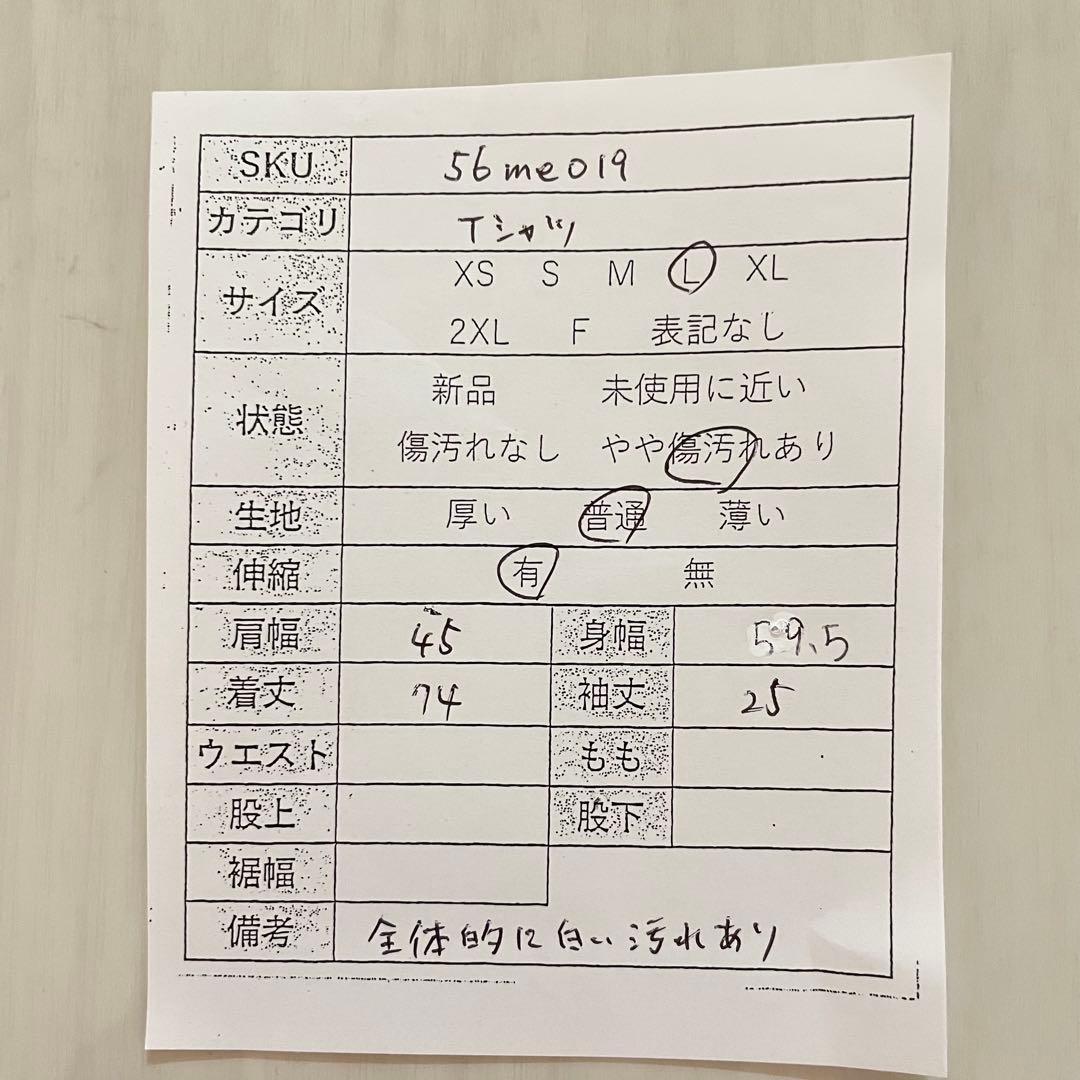 SKU 56me019
カテゴリ Tシャツ
サイズ XS S M L XL
2XL F 表記なし
状態 新品 未使用に近い
傷汚れなし やや傷汚れあり
生地 厚い 普通 薄い
伸縮 有 無
肩幅 45 身幅 59.5
着丈 74 袖丈 25
ウエスト もも
股上 股下
裾幅
備考 全体的に白い汚れあり